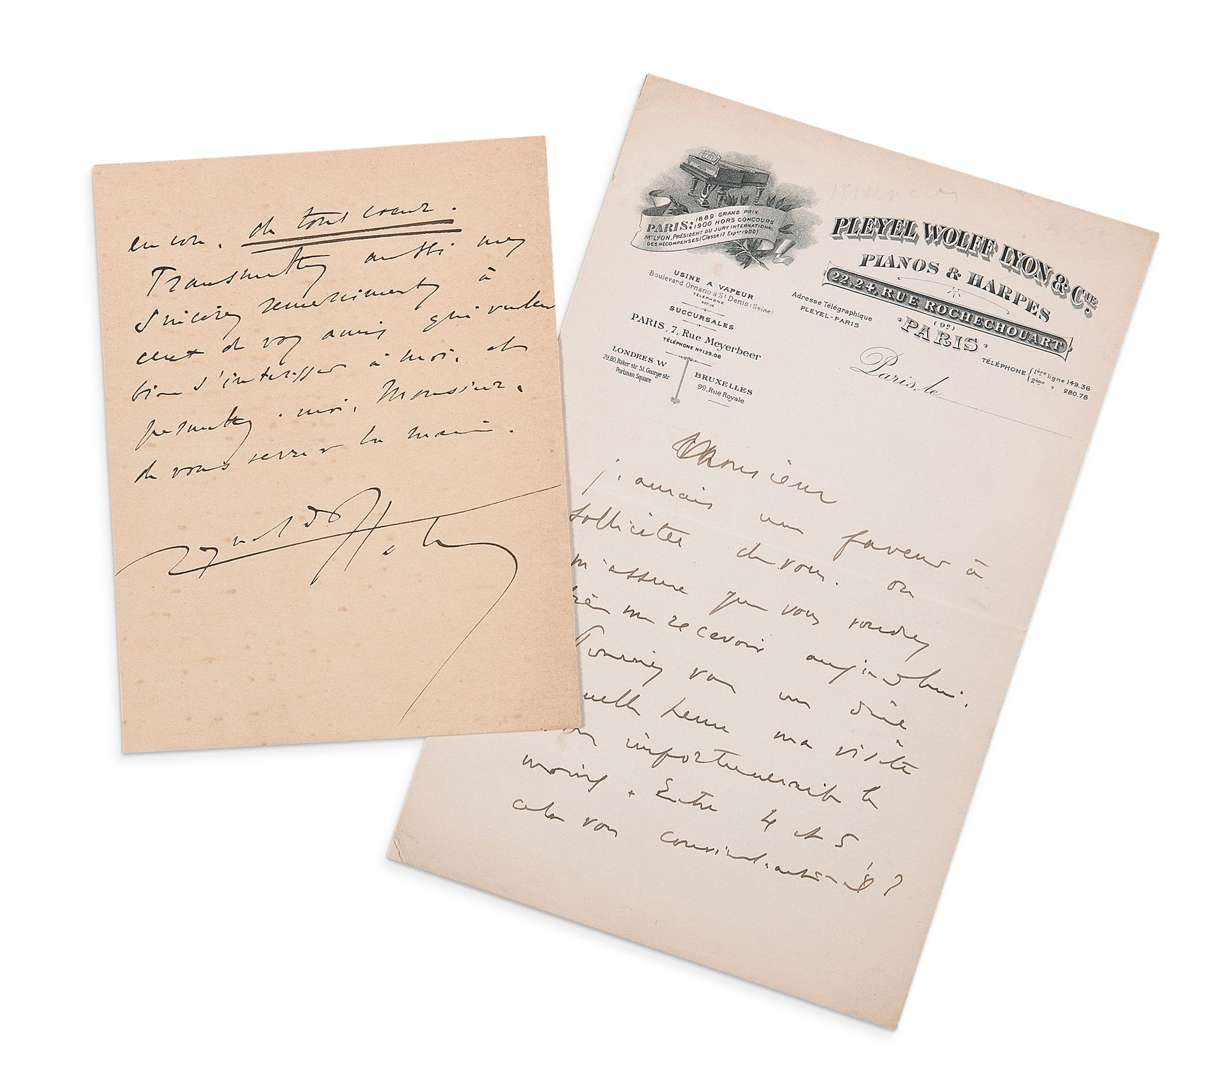 encore. de tout coeur.
Transmettez aussi mes
sincères remerciements à
ceux de vos amis qui veulent
bien s'intéresser à moi. et
permettez-moi, Monsieur,
de vous serrer la main.
Reynaldo Hahn
PARIS: 1889 GRAND PRIX
1900 HORS CONCOURS
Mr LYON, PRÉSIDENT DU JURY INTERNATIONAL
DES RÉCOMPENSES (Classe 17 Expon 1900)
USINE A VAPEUR
Boulevard Ornano à St Denis (Seine)
TÉLÉPHONE
SUCCURSALES
PARIS, 7, Rue Meyerbeer
TÉLÉPHONE No 139.08
LONDRES W
79.80. Baker str. St. George str.
Portman Square
BRUXELLES
99, Rue Royale
PLEYEL WOLFF LYON & Cie
PIANOS & HARPES
22.24. RUE ROCHECHOUART
(9e)
PARIS
Adresse Télégraphique
PLEYEL-PARIS
TÉLÉPHONE 1ère ligne 149.36
2ème " 280.78
Paris, le
Monsieur
j'aurais une faveur à
solliciter de vous. on
m'assure que vous voudrez
bien me recevoir aujourd'hui.
Pourriez vous me dire
quelle heure ma visite
importunerait le
moins. Entre 4 et 5
cela vous conviendrait-il?